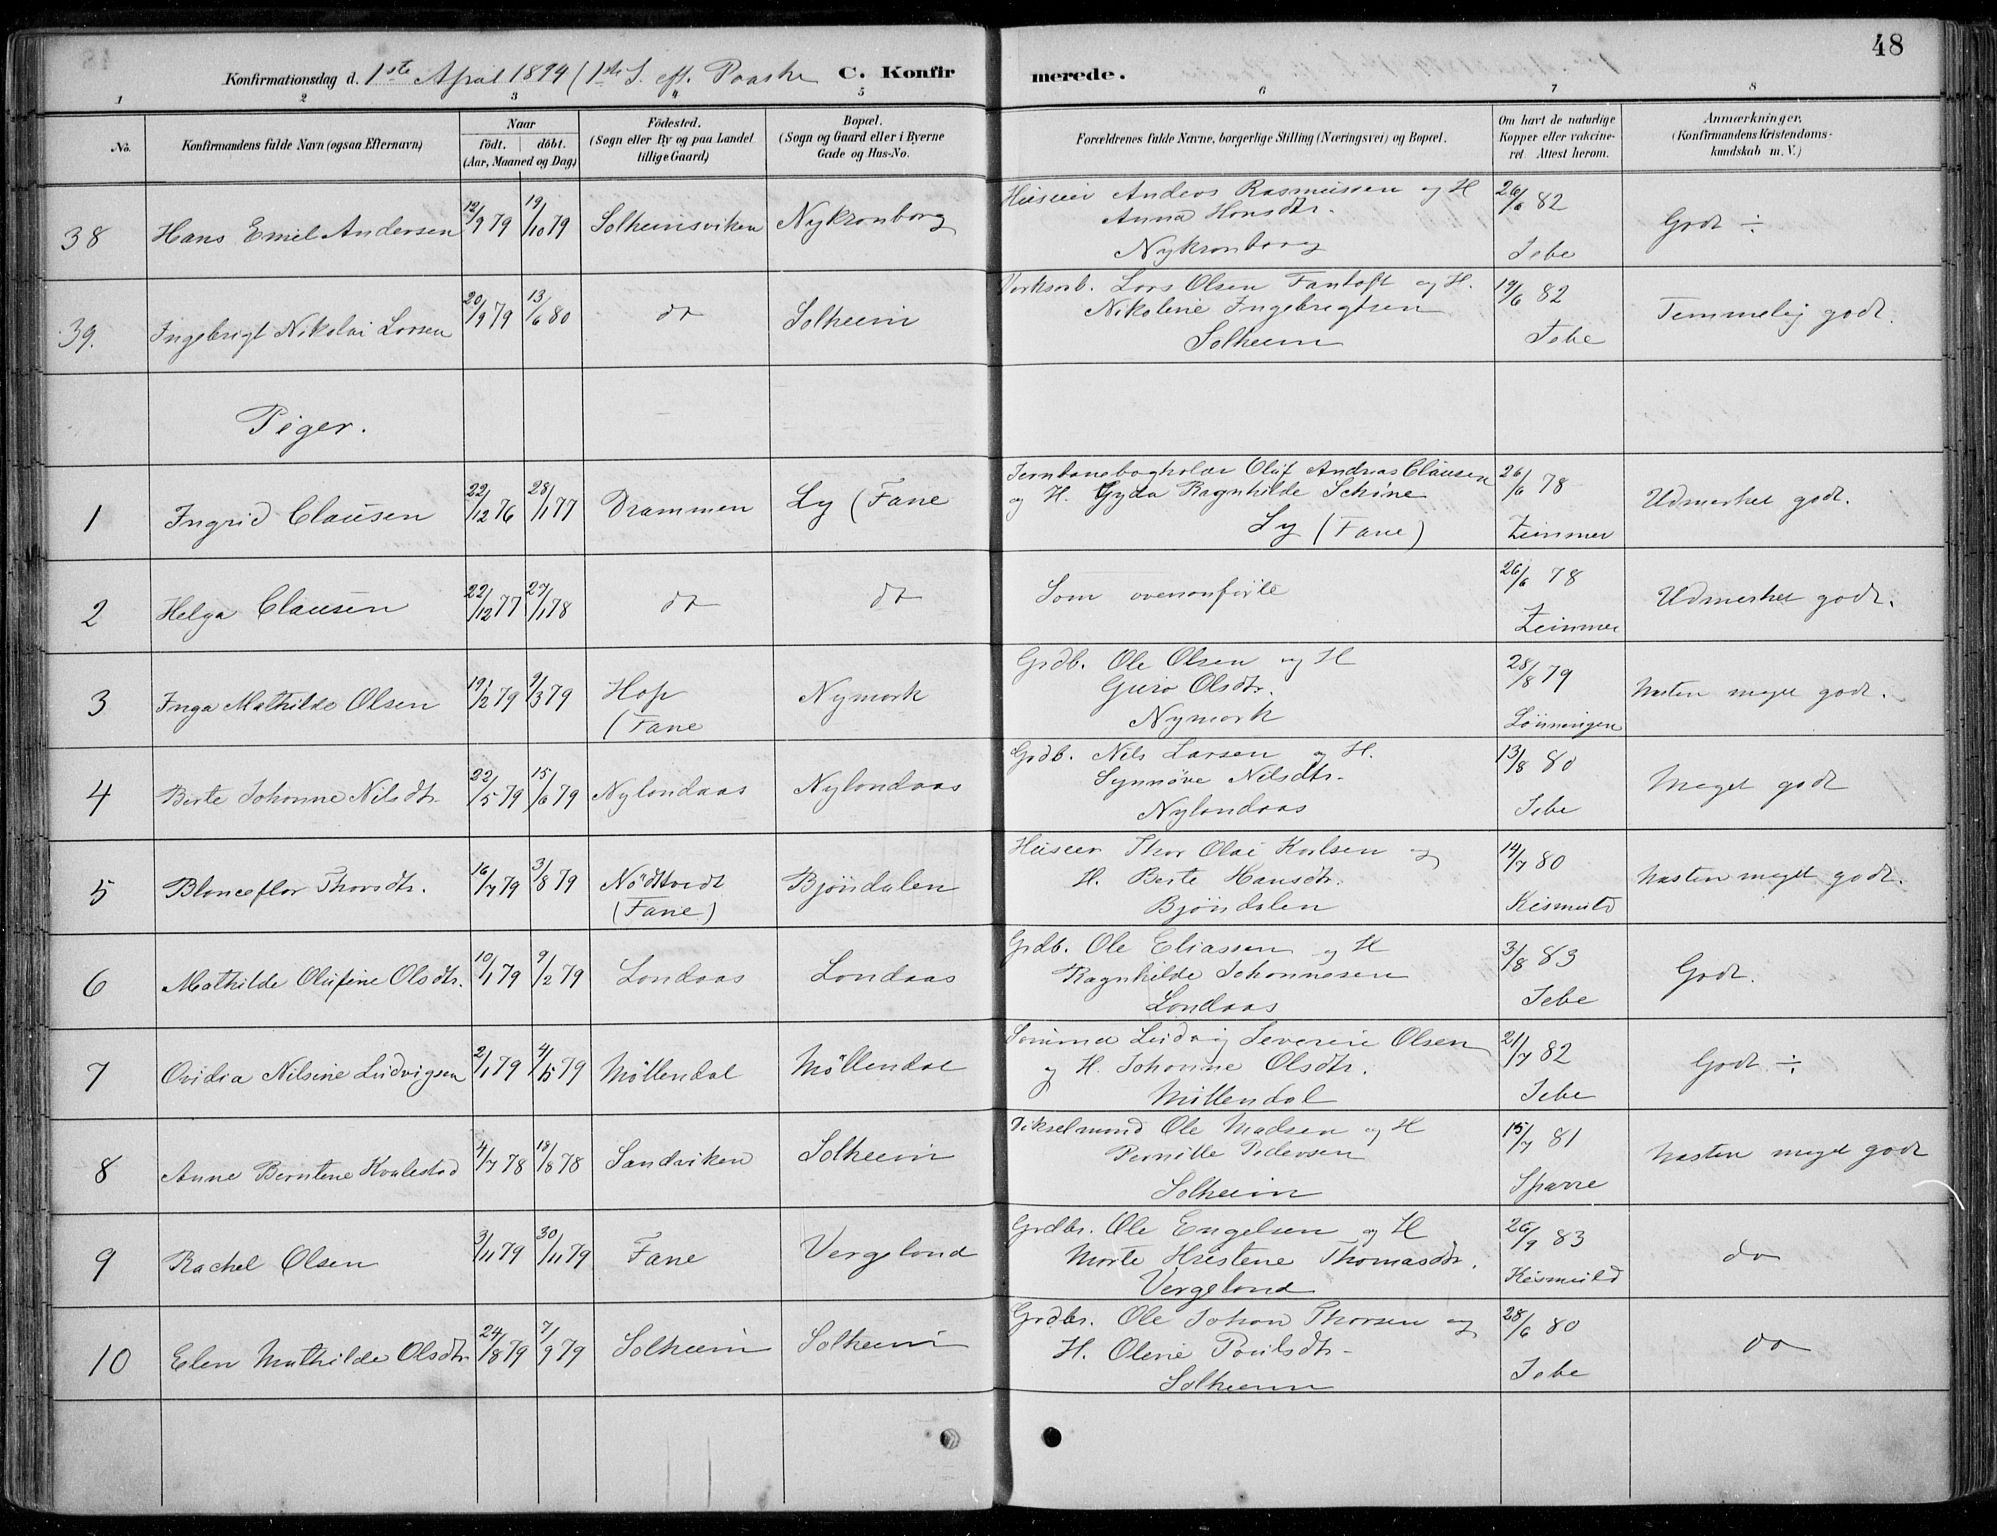 48
Konfirmationsdag d. 1ste April 1894 (1ste S. eft. Paaske C. Konfirmerede.
1 2 3 4 5 6 7 8
No. Konfirmandens fulde Navn (ogsaa Efternavn) Naar født. døbt. (Aar, Maaned og Dag) Födested. (Sogn eller By og paa Landet tillige Gaard) Bopæl. (Sogn og Gaard eller i Byerne Gade og Hus-No. Forældrenes fulde Navne, borgerlige Stilling (Næringsvei) og Bopæl. Om havt de naturlige Kopper eller vakcineret. Attest herom. Anmærkninger. (Konfirmandens Kristendomskundskab m. V.)
38 Hans Emil Andersen 12/9 79 19/10 79 Solheimsviken Nykronborg Huseier Anders Rasmussen og H Anna Hansdtr. Nykronborg 26/6 82 Jebe Godt ÷
39. Ingebrigt Nikolai Larsen 20/9 79 13/6 80 do Solheim Verksarb. Lars Olsen Fantoft og H. Nikoline Ingebrigtsen Solheim 19/6 82 Jebe Temmelig godt.
Piger.
1 Ingrid Clausen 22/12 76 28/1 77 Drammen Ly (Fane Jernbanebogholder Oluf Andreas Clausen og H. Gyda Ragnhilde Schine Ly (Fane) 26/6 78 Zeimmer Udmerket godt.
2 Helga Clausen 22/12 77 27/1 78 do do Som ovenanførte 26/6 78 Zeimmer Udmerket godt.
3 Inga Mathilde Olsen 19/2 79 9/3 79 Hop (Fane Nymark Grdb. Ole Olsen og H Guro Olsdtr. Nymark 28/8 79 Lönningen Næsten meget godt.
4 Berte Johanne Nilsdtr. 22/5 79 15/6 79 Nylandaas Nylandaas Grdb. Nils Larsen og H. Synnøve Nilsdtr. Nylandaas 13/8 80 Jebe Meget godt
5 Blanceflor Thorsdtr. 16/7 79 3/8 79 Nödtvedt (Fane) Bjöndalen Huseier Thor Olai Karlsen og H. Berte Hansdtr. Bjöndalen 14/7 80 Kismuld Næsten meget godt.
6 Mathilde Olufine Olsdtr. 10/1 79 9/2 79 Landaas Landaas Grdb. Ole Eliassen og H Ragnhilde Johannesen Landaas 3/8 83 Jebe Godt.
7 Ovidia Nilsine Ludvigsen 2/1 79 4/5 79 Möllendal Möllendal Sömmd Ludvig Severin Olsen og H. Johanne Olsdtr. Möllendal 21/7 82 Jebe Godt ÷
8 Anne Berntine Kvalestad 4/7 78 18/8 78 Sandviken Solheim Vikselmand Ole Madsen og H Pernille Pedersen Solheim 15/7 81 Sparre Næsten meget godt
9 Rachel Olsen 3/11 79 30/11 79 Fane Vergeland Grdbr. Ole Engelsen og H Marte Kristene Thomasdtr. Vergeland 26/9 83 Kismuld do
10 Elen Mathilde Olsdtr 24/8 79 7/9 79 Solheim Solheim Grdbr. Ole Johan Thorsen og H. Oline Poulsdtr. Solheim 28/6 80 Jebe do